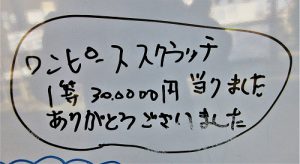 ワンピーススクラッチ
1等 300000円 当りました
ありがとうございました